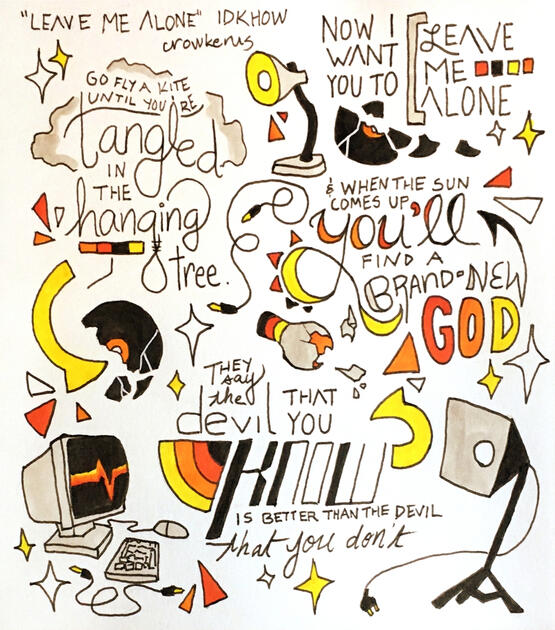 "LEAVE ME ALONE" IDKHOW
crowkerus
NOW I
WANT
YOU TO
LEAVE
ME
ALONE
GO FLY A KITE
UNTIL YOU'RE
tangled
IN
THE
hanging
tree.
& WHEN THE SUN
COMES UP
you'll
FIND A
BRAND-NEW
GOD
THEY
say
the
devil
THAT
YOU
KNOW
IS BETTER THAN THE DEVIL
that you don't